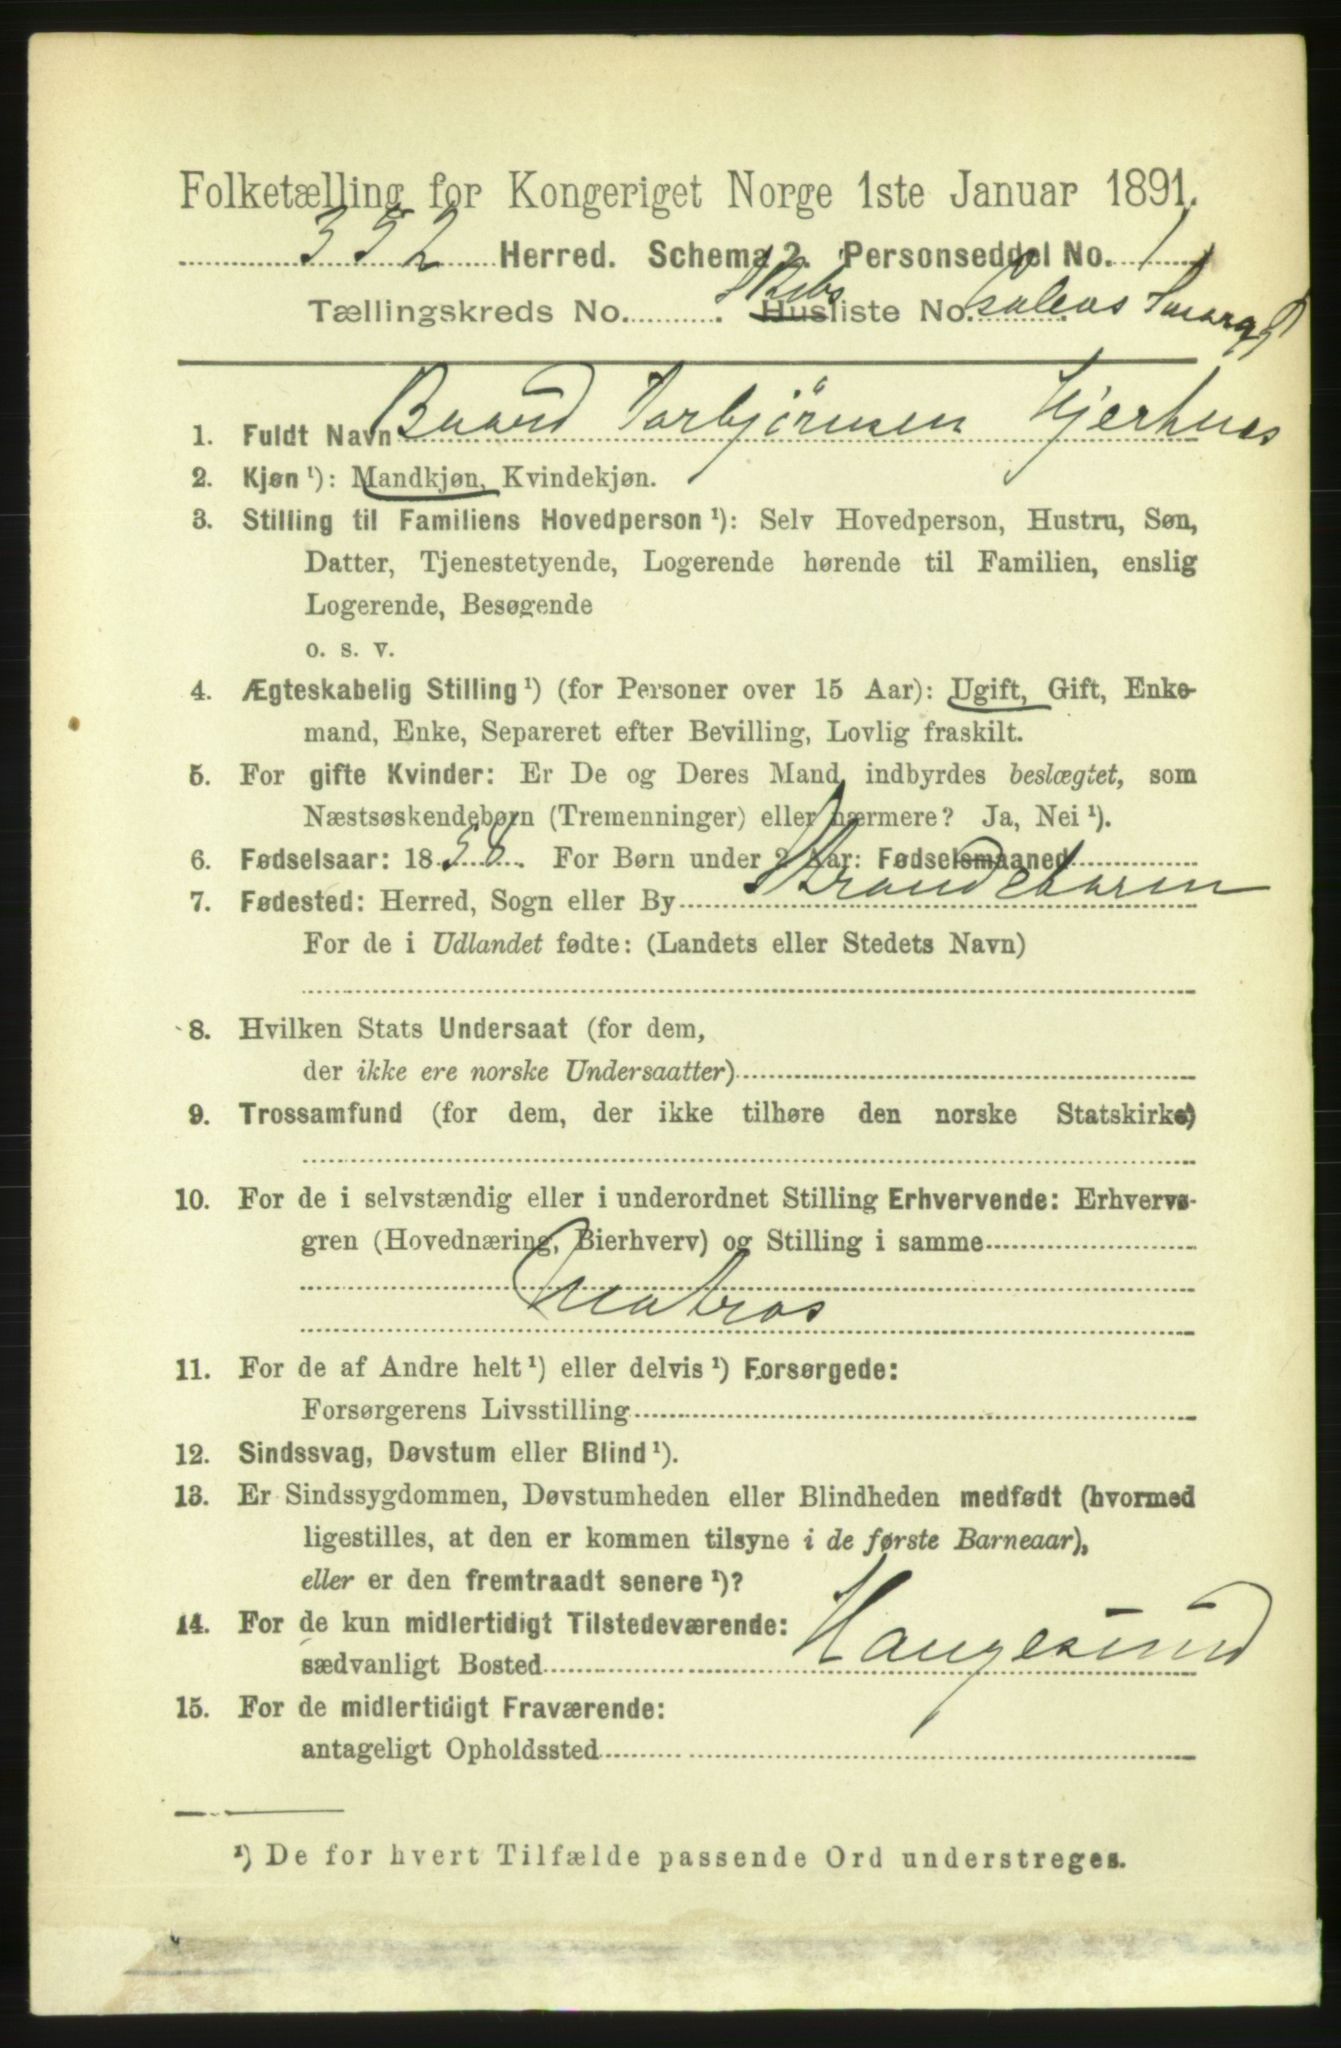 Folketælling for Kongeriget Norge 1ste Januar 1891.
352 Herred. Schema 2. Personseddel No. 1
Tællingskreds No. . Skibs Husliste No. Galeas Smaragd
1. Fuldt Navn Baard Torbjörnsen Gjerhus
2. Kjøn ¹): Mandkjøn, Kvindekjøn.
3. Stilling til Familiens Hovedperson ¹): Selv Hovedperson, Hustru, Søn,
Datter, Tjenestetyende, Logerende hørende til Familien, enslig
Logerende, Besøgende
o. s. v.
4. Ægteskabelig Stilling ¹) (for Personer over 15 Aar): Ugift, Gift, Enke-
mand, Enke, Separeret efter Bevilling, Lovlig fraskilt.
5. For gifte Kvinder: Er De og Deres Mand indbyrdes beslægtet, som
Næstsøskendebørn (Tremenninger) eller nærmere? Ja, Nei ¹).
6. Fødselsaar: 1858. For Børn under 2 Aar: Fødselsmaaned
7. Fødested: Herred, Sogn eller By Strandebarm
For de i Udlandet fødte: (Landets eller Stedets Navn)
8. Hvilken Stats Undersaat (for dem,
der ikke ere norske Undersaatter)
9. Trossamfund (for dem, der ikke tilhøre den norske Statskirke)
10. For de i selvstændig eller i underordnet Stilling Erhvervende: Erhvervs-
gren (Hovednæring, Bierhverv) og Stilling i samme
Matros
11. For de af Andre helt ¹) eller delvis ¹) Forsørgede:
Forsørgerens Livsstilling
12. Sindssvag, Døvstum eller Blind ¹).
13. Er Sindssygdommen, Døvstumheden eller Blindheden medfødt (hvormed
ligestilles, at den er kommen tilsyne i de første Barneaar),
eller er den fremtraadt senere ¹)?
14. For de kun midlertidigt Tilstedeværende:
sædvanligt Bosted Haugesund
15. For de midlertidigt Fraværende:
antageligt Opholdssted
¹) De for hvert Tilfælde passende Ord understreges.